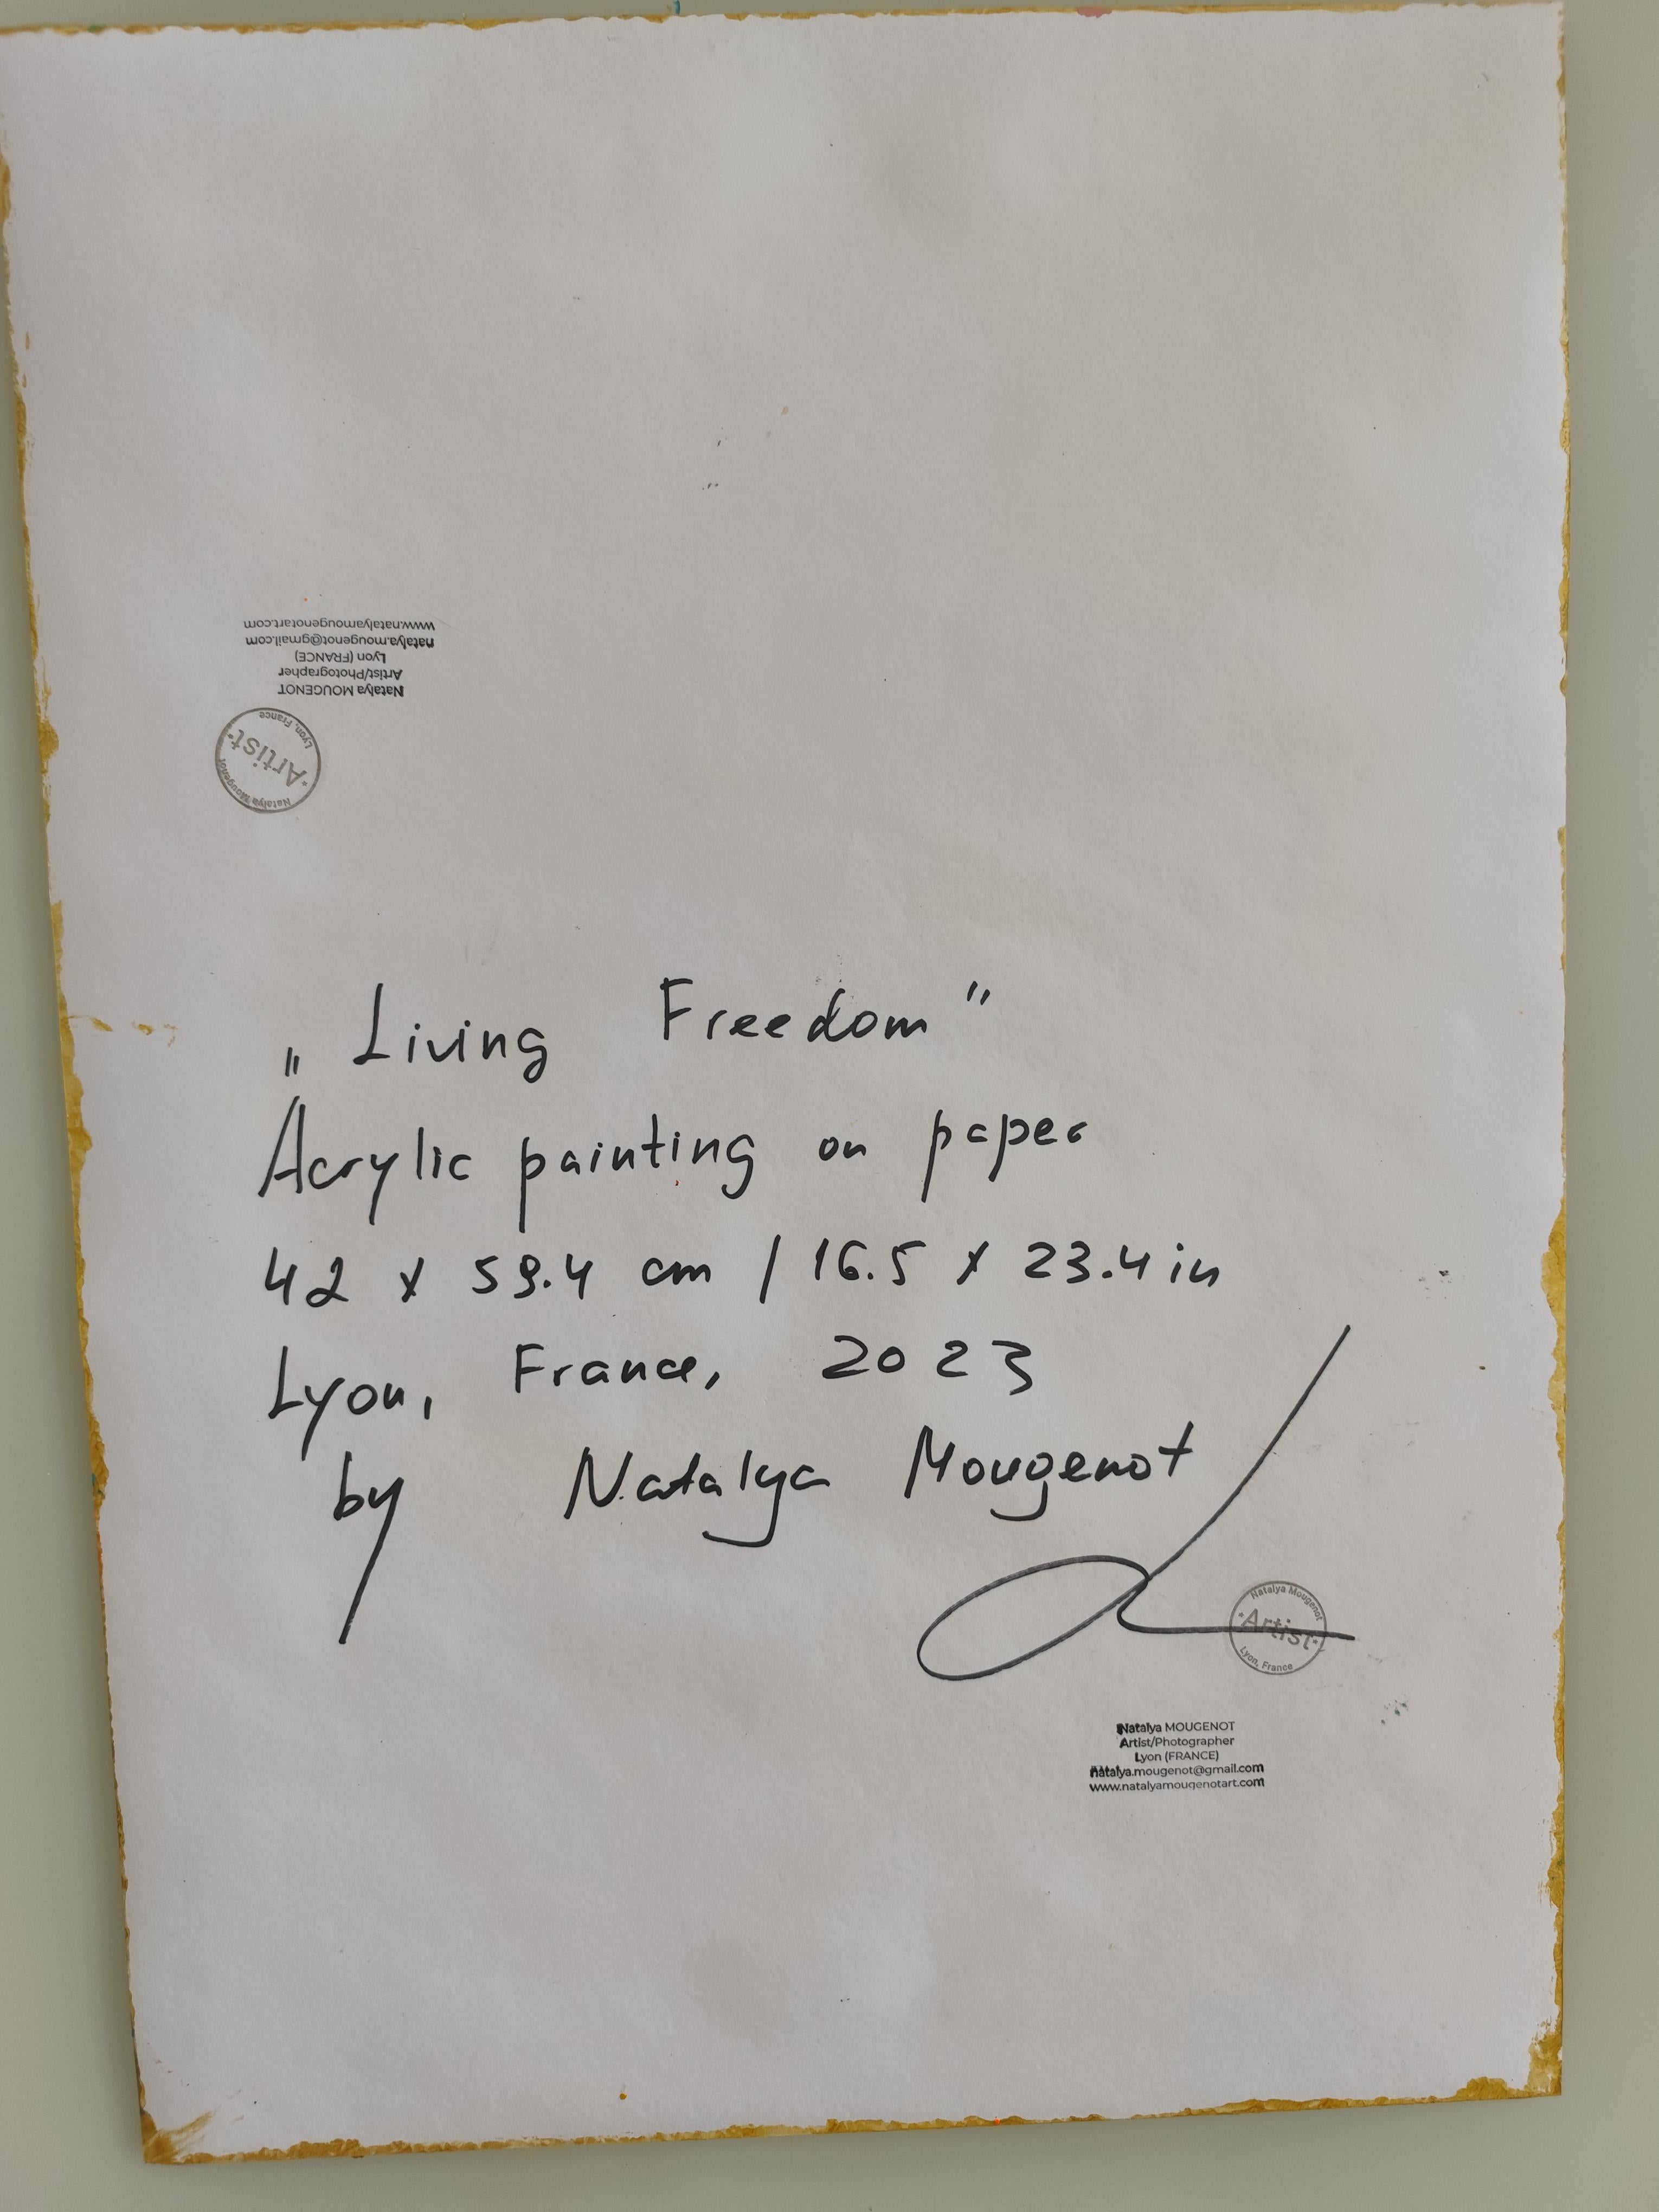 www.natalyamougenotart.com
natalya.mougenot@gmail.com
Lyon (FRANCE)
Artist/Photographer
Natalya MOUGENOT
Lyon, France
Artist
Natalya Mougenot
„Living Freedom"
Acrylic painting on paper
42 x 59.4 cm / 16.5 x 23.4 in
Lyon, France, 2023
by Natalya Mougenot
Natalya Mougenot
Artist
Lyon, France
Natalya MOUGENOT
Artist/Photographer
Lyon (FRANCE)
natalya.mougenot@gmail.com
www.natalyamougenotart.com